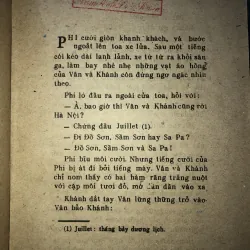 PHI cười giòn khanh khách, và bước
ngoắt lên toa xe lửa. Sau một tiếng
còi kéo dài lanh lảnh, xe từ từ ra khỏi sân
ga, làm bay nhè nhẹ những vạt áo hồng
của Vân và Khánh còn đứng ngơ ngác nhìn
theo.
Phi ló đầu ra ngoài toa, hỏi với:
— À, bao giờ thì Vân và Khánh cùng về
Hà Nội?
— Chừng đâu Juillet (1).
— Đi Đồ Sơn, Sầm Sơn hay Sa Pa?
— Đi Đồ Sơn, Sầm Sơn và Sa Pa!
Phi bĩu môi cười. Nhưng tiếng cười của
Phi bị át đi bởi tiếng máy. Vân và Khánh
chỉ nom thấy có hai hàm răng trắng nuột
với cặp môi tươi đỏ, mờ dần dần vào xa
Khánh dắt tay Vân lững thững trở vào
Vân bảo Khánh:
(1) Juillet: tháng bảy dương lịch.